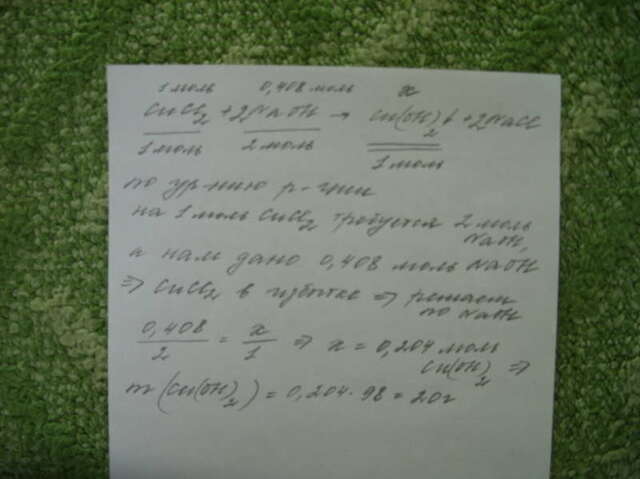 1 моль 0,408 моль x
CuCl2 + 2NaOH → Cu(OH)2↓ + 2NaCl
1 моль 2 моль 1 моль
по ур-нию р-ции
на 1 моль CuCl2 требуется 2 моль NaOH,
а нам дано 0,408 моль NaOH
⇒ CuCl2 в избытке ⇒ решаем по NaOH
0,408/2 = x/1 ⇒ x = 0,204 моль Cu(OH)2 ⇒
m(Cu(OH)2) = 0,204·98 = 20г